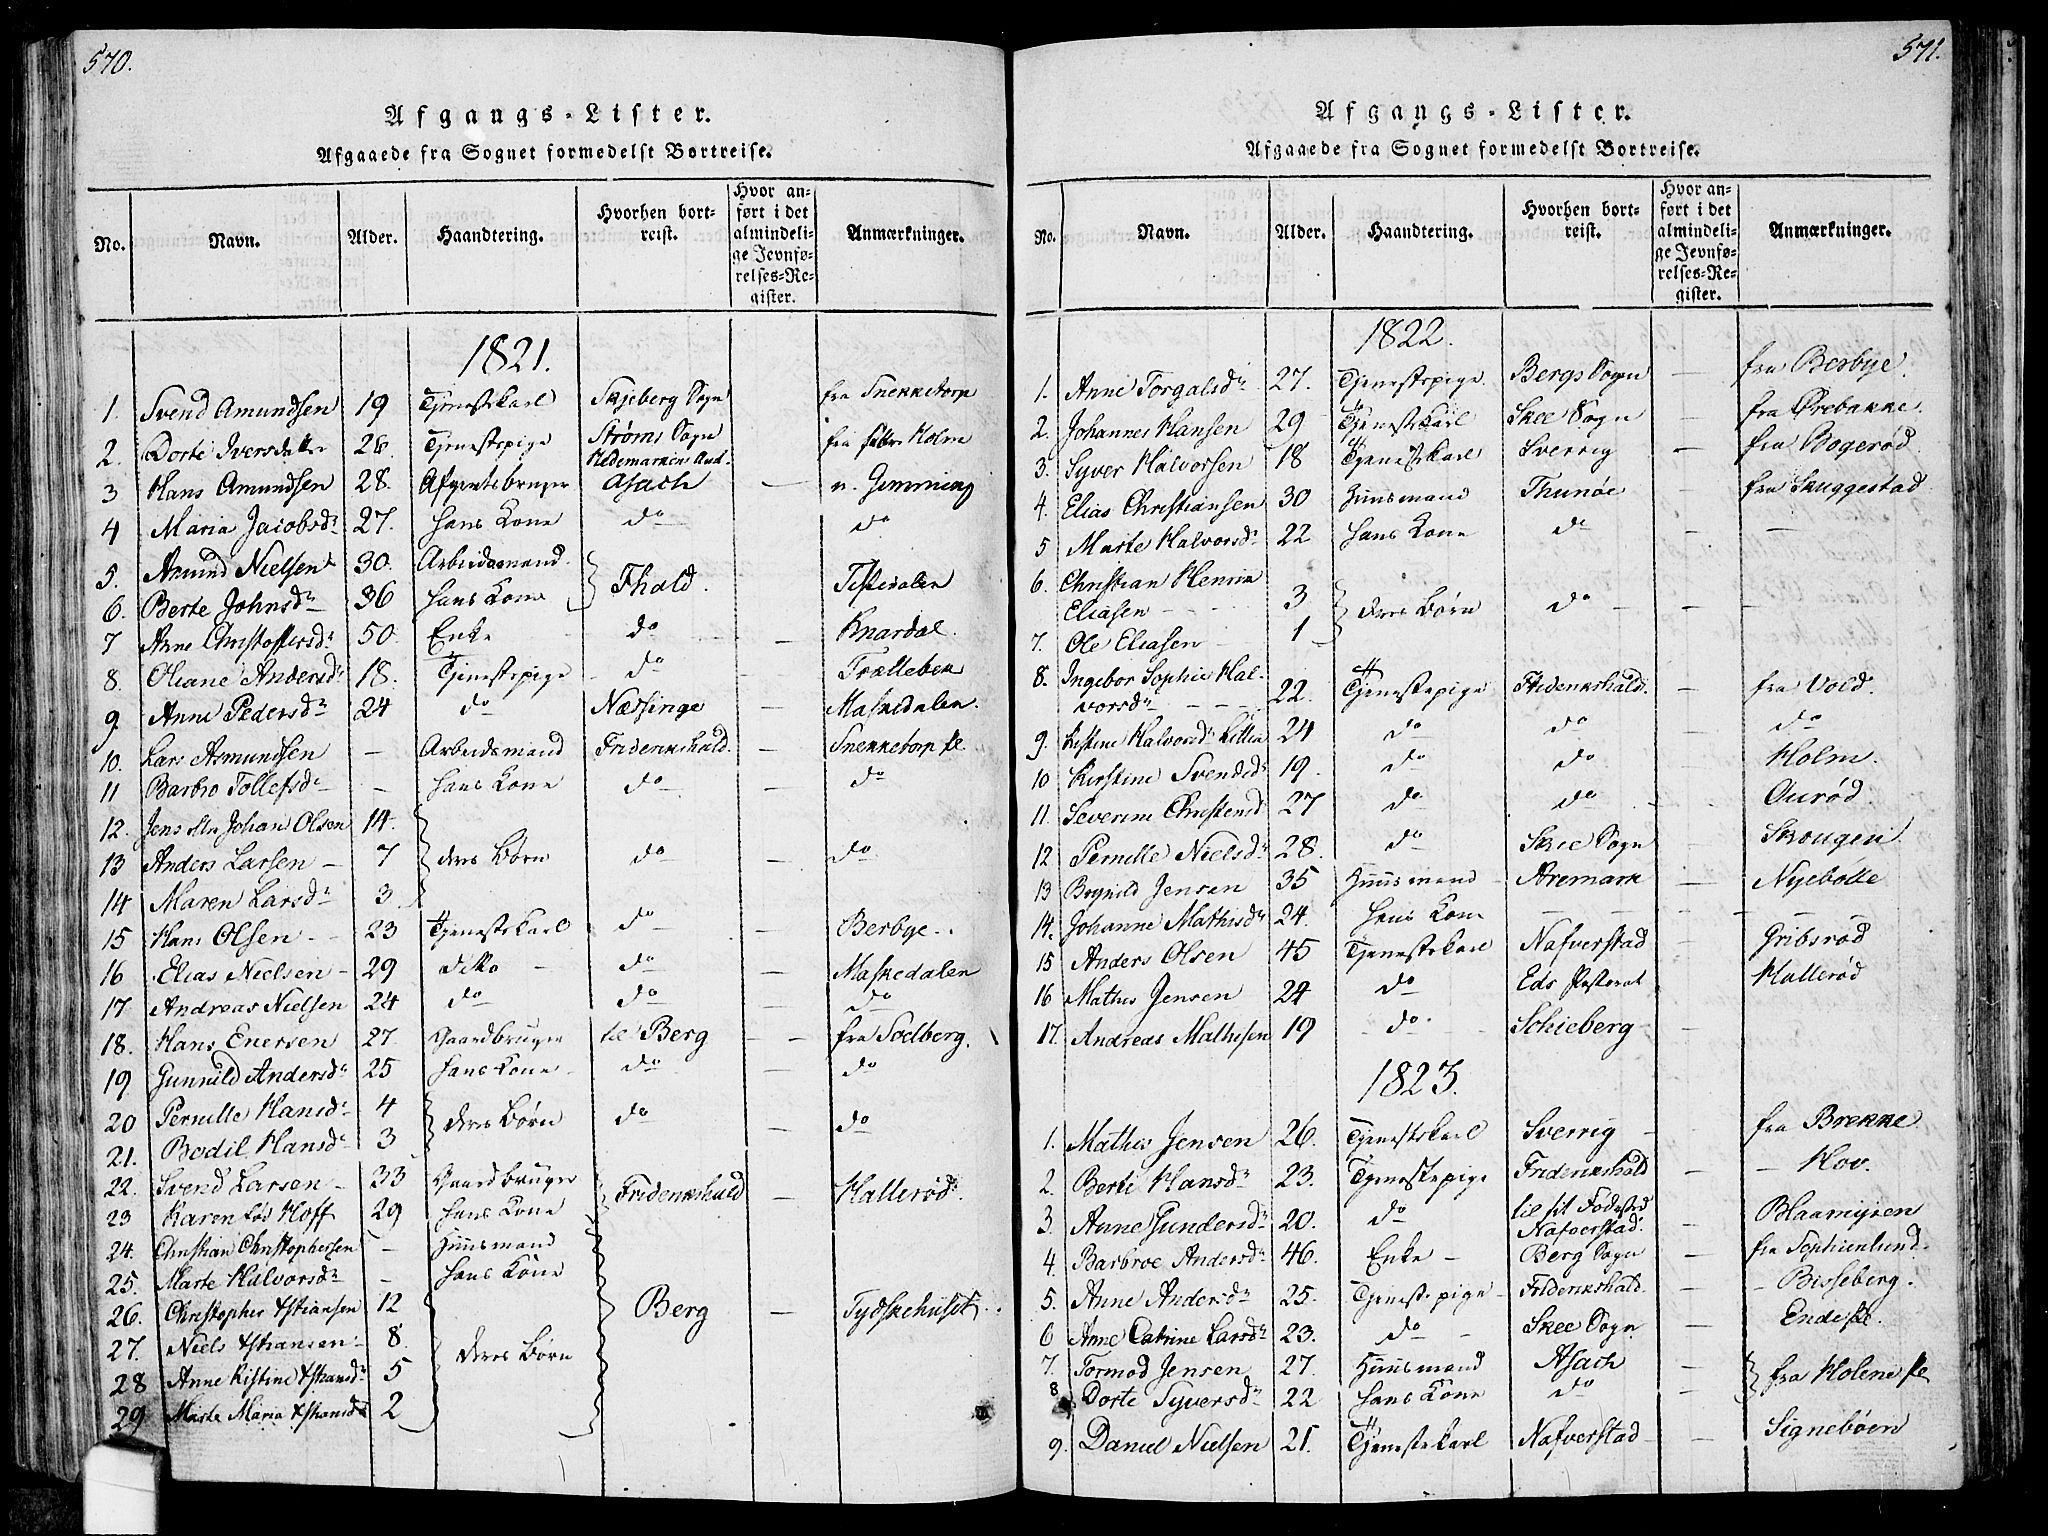 570.
Afgangs-Lister.
Afgaaede fra Sognet formedelst Bortreise.
No. Navn. Alder. Haandtering. Hvorhen bort-reist. Hvor an-ført i det almindeli-ge Jevnfø-relses-Re-gister. Anmærkninger.
1821.
1. Svend Amundsen 19 Tjenestekarl Skjeberg Sogn fra Snekketorp
2. Dorte Iversdatter 26 Tjenestepige Strøms Sogn Hedemarken fra Holm
3 Hans Amundsen 28. Afgiftsbruger Asach — n. Gimming
4 Maria Jacobsdr 27. Hans Kone do do
5. Amund Nielsen 30. Arbeidsmand Fhald. Tistedalen
6. Berte Johnsdr 36 Hans Kone
7 Anne Christoffersdr 50. Enke do — Knardal.
8. Oliane Andersdr 18. Tjenestepige do Trolleben
9 Anne Pedersdr 24 do Næssinge — Maskedalen.
10. Lars Asmundsen — Arbeidsmand Friderikshald. — Snekketorp
11 Barbro Tollefsdr — Hans Kone do — do
12. Jens Johan Olsen 14.
13 Anders Larsen — 7 deres Børn do — do
14 Maren Larsdr 3
15 Hans Olsen 23 Tjenestekarl do — Berbye
16 Elias Nielsen — 29 ditto — do — Maskedalen
17. Andreas Nielsen 24 do do — do
18. Hans Enersen 27. Gaardbruger til Berg — fra Sodberg.
19 Gunnild Andersdr 25 Hans Kone do — do
20 Pernille Hansdr 4 deres Børn do — do
21. Bodil Hansdr 3
22. Svend Larsen — 33 Gaardbruger Friderikshald — Kallerød.
23 Karen fød Hoff 29 Hans Kone
24. Christian Christophersen — Huusmand
25. Marte Halvorsdr — Hans Kone
26. Christopher Xstiansen 12 Berg — Tydskehuset
27. Niels Xstiansen 8. deres Børn
28 Anne Kistine Xstiansdr 5
29 Marte Maria Xstiansdr 2
571.
Afgangs-Lister.
Afgaaede fra Sognet formedelst Bortreise.
No. Navn. Alder. Haandtering. Hvorhen bort-reist. Hvor an-ført i det almindeli-ge Jevnfø-relses-Re-gister. Anmærkninger.
1822.
1. Anne Torgalsdr 27. Tjenestepige Bergs Sogn — fra Berbye.
2. Johannes Hansen 29 Tjenestekarl Skee Sogn — fra Ørebakke.
3. Syver Halvorsen 18 Tjenestekarl Sverrig — fra Bogerød
4. Elias Christiansen 30 Huusmand Thunøe — fra Skuggestad
5 Marte Halvorsdr 22 Hans Kone do — —
6. Christian Henrik
Eliasen 3 deres Børn do — —
7. Ole Eliasen 1
8. Ingebor Sophie Hal-
vorsdr 22. Tjenestepige Friderikshald. — fra Vold.
9. Kistine Halvorsdr Littia 24 do do — do
10 Kirstine Svendsdr 19. do do — Holm.
11. Severine Christensdr 27 do do Aurød.
12 Pernille Nielsdr 28. do Skee Sogn — Skougen
13 Bognild Jensen 35 Huusmand Aremark — Nyebølle
14. Johanne Mathisdr 24. Hans Kone — — —
15 Anders Olsen 45 Tjenestekarl Nafverstad Gribsrød
16 Mathis Jensen 24 do Eds Pastorat — Kallerød
17. Andreas Mathisen 19 do Schieberg —
1823.
1. Mathis Jensen 26. Tjenestekarl Sverrig — fra Brekke
2. Berte Hansdr 23. Tjenestepige Friderikshald — — Hov.
3. Anne Gundersdr 20. do til sit Fødested
Nafverstad. — Blaamyren
4. Barbroe Andersdr 46. Enke — Berg Sogn — fra Sophienlund.
5. Anne Andersdr 25. Tjenestepige Friderikshald. — Bisseberg.
6 Anne Catrine Larsdr 23. do — Skee Sogn — Ende
7. Tormod Jensen 27. Huusmand Asach — fra Holene
8 Dorte Syversdr 22 Hans Kone do —
9. Daniel Nielsen 21. Tjenestekarl Nafverstad — Signebøen